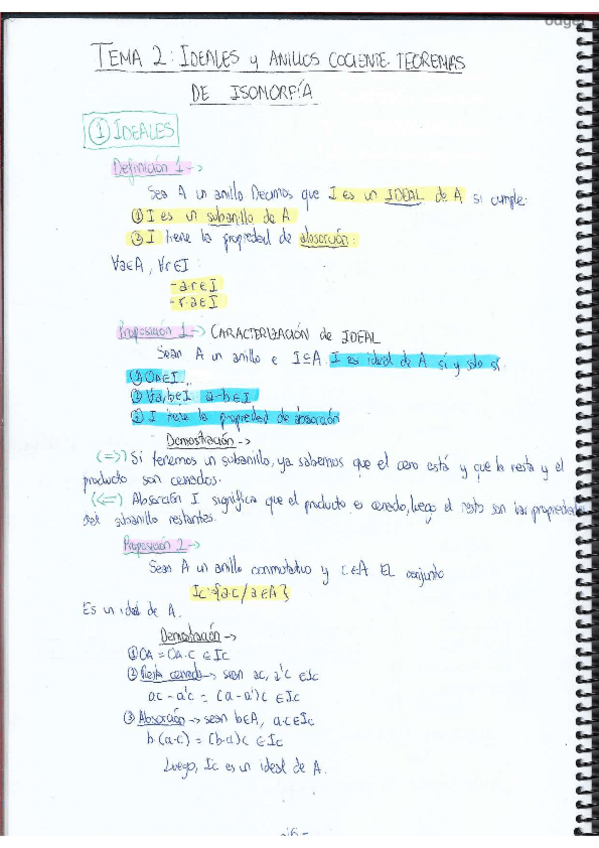 TEMA 2: IDEALES y ANILLOS COCIENTE. TEOREMAS
DE ISOMORFÍA
① IDEALES
Definición 1 ->
Sea A un anillo Decimos que I es un IDEAL de A si cumple:
① I es un subanillo de A
② I tiene la propiedad de absorción:
∀a∈A, ∀r∈I:
- a·r∈I
- r·a∈I
Proposición 1 -> CARACTERIZACIÓN de IDEAL
Sean A un anillo e I⊆A. I es ideal de A sí y solo sí:
① 0A∈I
② ∀a,b∈I a-b∈I
③ I tiene la propiedad de absorción
Demostración ->
(=>) Si tenemos un subanillo, ya sabemos que el cero está y que la resta y el
producto son cerrados.
(<=) Absorción I significa que el producto es cerrado, luego el resto son las propiedades
del subanillo restantes.
Proposición 2 ->
Sean A un anillo conmutativo y c∈A El conjunto
Ic={a·c/a∈A}
Es un ideal de A.
Demostración ->
① 0A = 0A·c ∈ Ic
② Resta cerrada -> sean ac, a'c ∈Ic
ac - a'c = (a-a')c ∈Ic
③ Absorción -> sean b∈A, a·c∈Ic
b(a·c) = (b·a)c ∈Ic
Luego, Ic es un ideal de A.